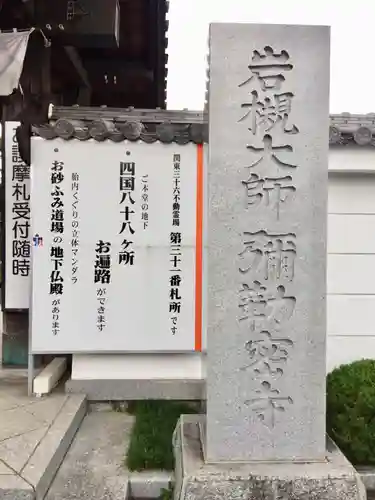 岩槻大師彌勒密寺
関東三十六不動霊場 第三十一番札所です
ご本堂の地下
四国八十八ヶ所
お遍路ができます
胎内くぐりの立体マンダラ
お砂ふみ道場の地下仏殿があります
護摩札受付随時